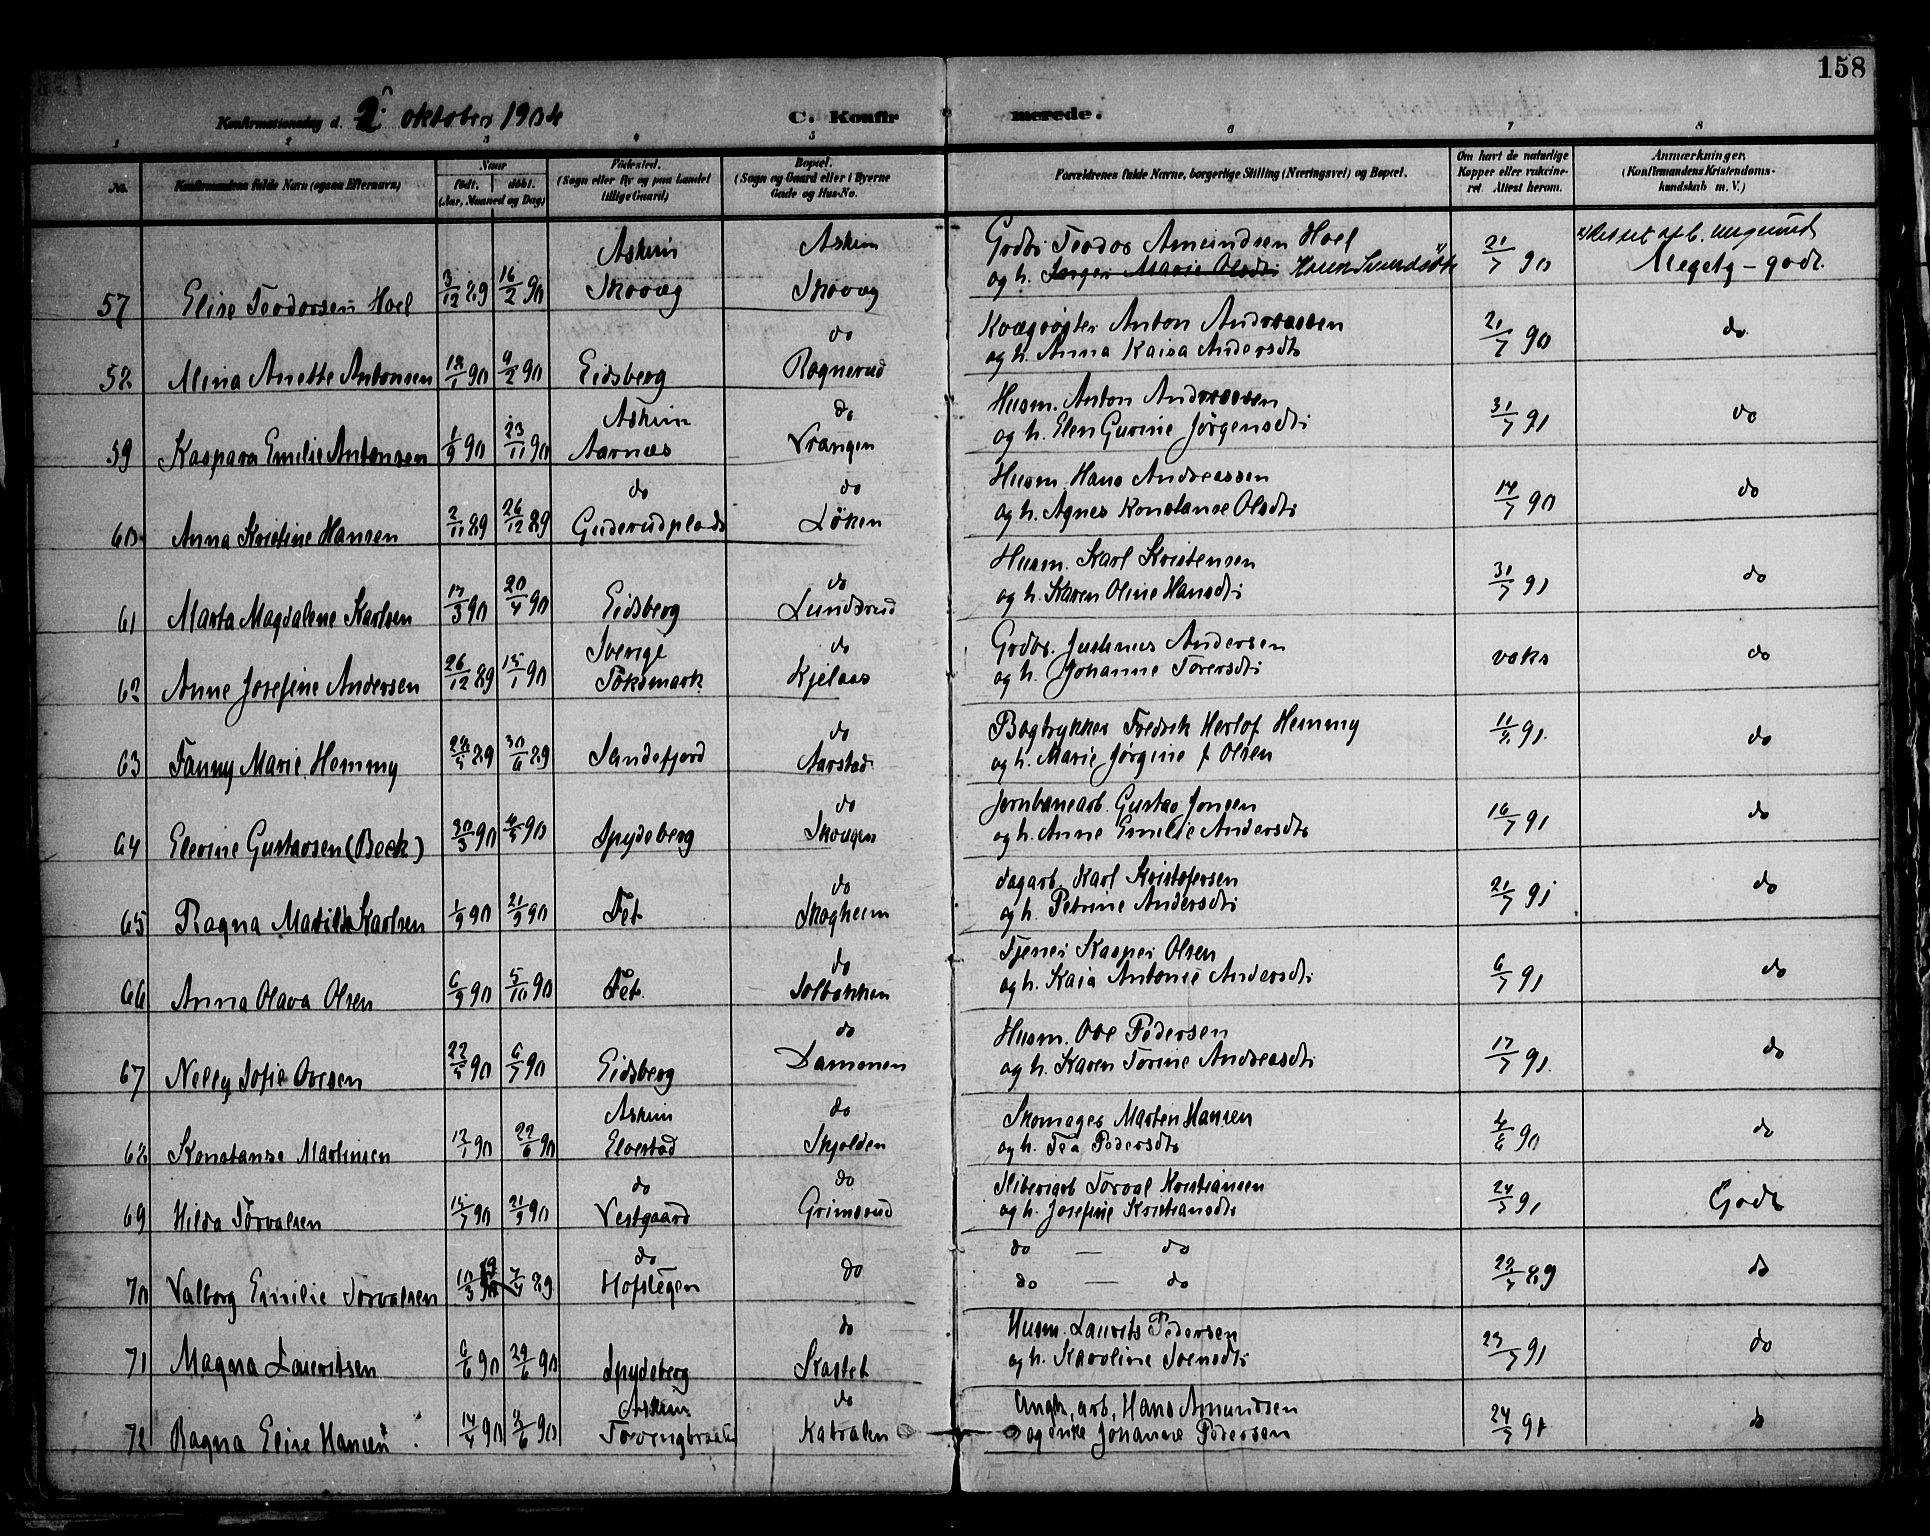 158
Konfirmationsdag d. 2 oktober 1904 C. Konfirmerede.
1 2 3 4 5 6 7 8
No. Konfirmandens fulde Navn (ogsaa Efternavn) Naar født. døbt. (Aar, Maaned og Dag) Fødested. (Sogn eller By og paa Landet tillige Gaard) Bopæl. (Sogn og Gaard eller i Byerne Gade og Hus-No. Forældrenes fulde Navne, borgerlige Stilling (Næringsvei) og Bopæl. Om havt de naturlige Kopper eller vaccineret. Attest herom. Anmærkninger. (Konfirmandens Kristendomskundskab m. V.)
Askim Askim Gdbr. Teodor Amundsen Hoel
57 Elise Teodorsen Hoel 3/12 89 16/2 90 Skovag Skovag og h. Jørgen Marie Olsdtr 21/7 90 Megetg - godt.
do Kvægrøgter Anton Andreassen
58 Alina Anette Antonsen 18/1 90 9/2 90 Eidsberg Rognerud og h. Anna Kaisa Andersdtr 21/7 90 do
Askim do Husm. Anton Andreassen
59 Kaspara Emilie Antonsen 1/9 90 23/11 90 Aarnæs Vrangen og h. Elen Gurine Jørgensdtr 31/7 91 do
do do Husm. Hans Andreassen
60 Anna Kristine Hansen 2/11 89 26/12 89 Guderudplads Løken og h. Agnes Konstanse Olsdtr 14/7 90 do
do Husm. Karl Kristensen
61 Marta Magdalene Karlsen 17/3 90 20/4 90 Eidsberg Lundsrud og h. Karen Oline Hansdtr 31/7 91 do
Sverige do Grdbr. Justinus Andersen
62 Anne Josefine Andersen 26/12 89 15/1 90 Töksmark Kjelaas og h. Johanne Torersdtr vaks do
do Bogtrykker Fredrik Herlof Hemmy
63 Fanny Marie Hemmy 28/4 89 30/6 89 Sandefjord Aarstad og h. Marie Jørgine f Olsen 11/8 91. do
do Jernbanearb. Gustav Jonsen
64 Elevine Gustavsen (Beck) 30/3 90 4/5 90 Spydeberg Skougen og h. Anne Emilie Andersdtr 16/7 91 do
do dagarb. Karl Kristofersen
65 Ragna Matilda Karlsen 1/9 90 21/9 90 Fet Skogheim og h. Petrine Andersdtr 21/7 91 do
do Tjener Kasper Olsen
66 Anna Olava Olsen 6/9 90 5/10 90 Fet. Solbakken og h. Kaia Antonie Andersdtr 6/7 91 do
do Husm. Ove Pedersen
67 Nelly Sofie Ovesen 22/5 90 6/7 90 Eidsberg Dammen og h. Karen Torine Andreasdtr 17/7 91. do
Askim do Skomager Marten Hansen
68 Konstanse Martinsen 13/1 90 22/6 90 Elvestad Skjolden og h. Tea Pedersdtr 4/6 90 do
do do Sliberiarb Torval Kristiansen
69 Hilda Torvalsen 15/7 90 21/9 90 Vestgaard Grimsrud og h. Josefine Kristiansdtr 24/7 91 Godt
do do — do
70 Valborg Emilie Torvalsen 10/3 89 7/4 89 Hofslegen do do — do 22/7 89 do
do Husm. Laurits Pedersen
71 Magna Lauritsen 6/6 90 29/6 90 Spydeberg Skastet og h. Karoline Svensdtr 23/7 91 do
Askim do arb. Hans Amundsen
72 Ragna Elise Hansen 14/4 90 Katralen og enke Johanne Pedersen 24/7 91 do